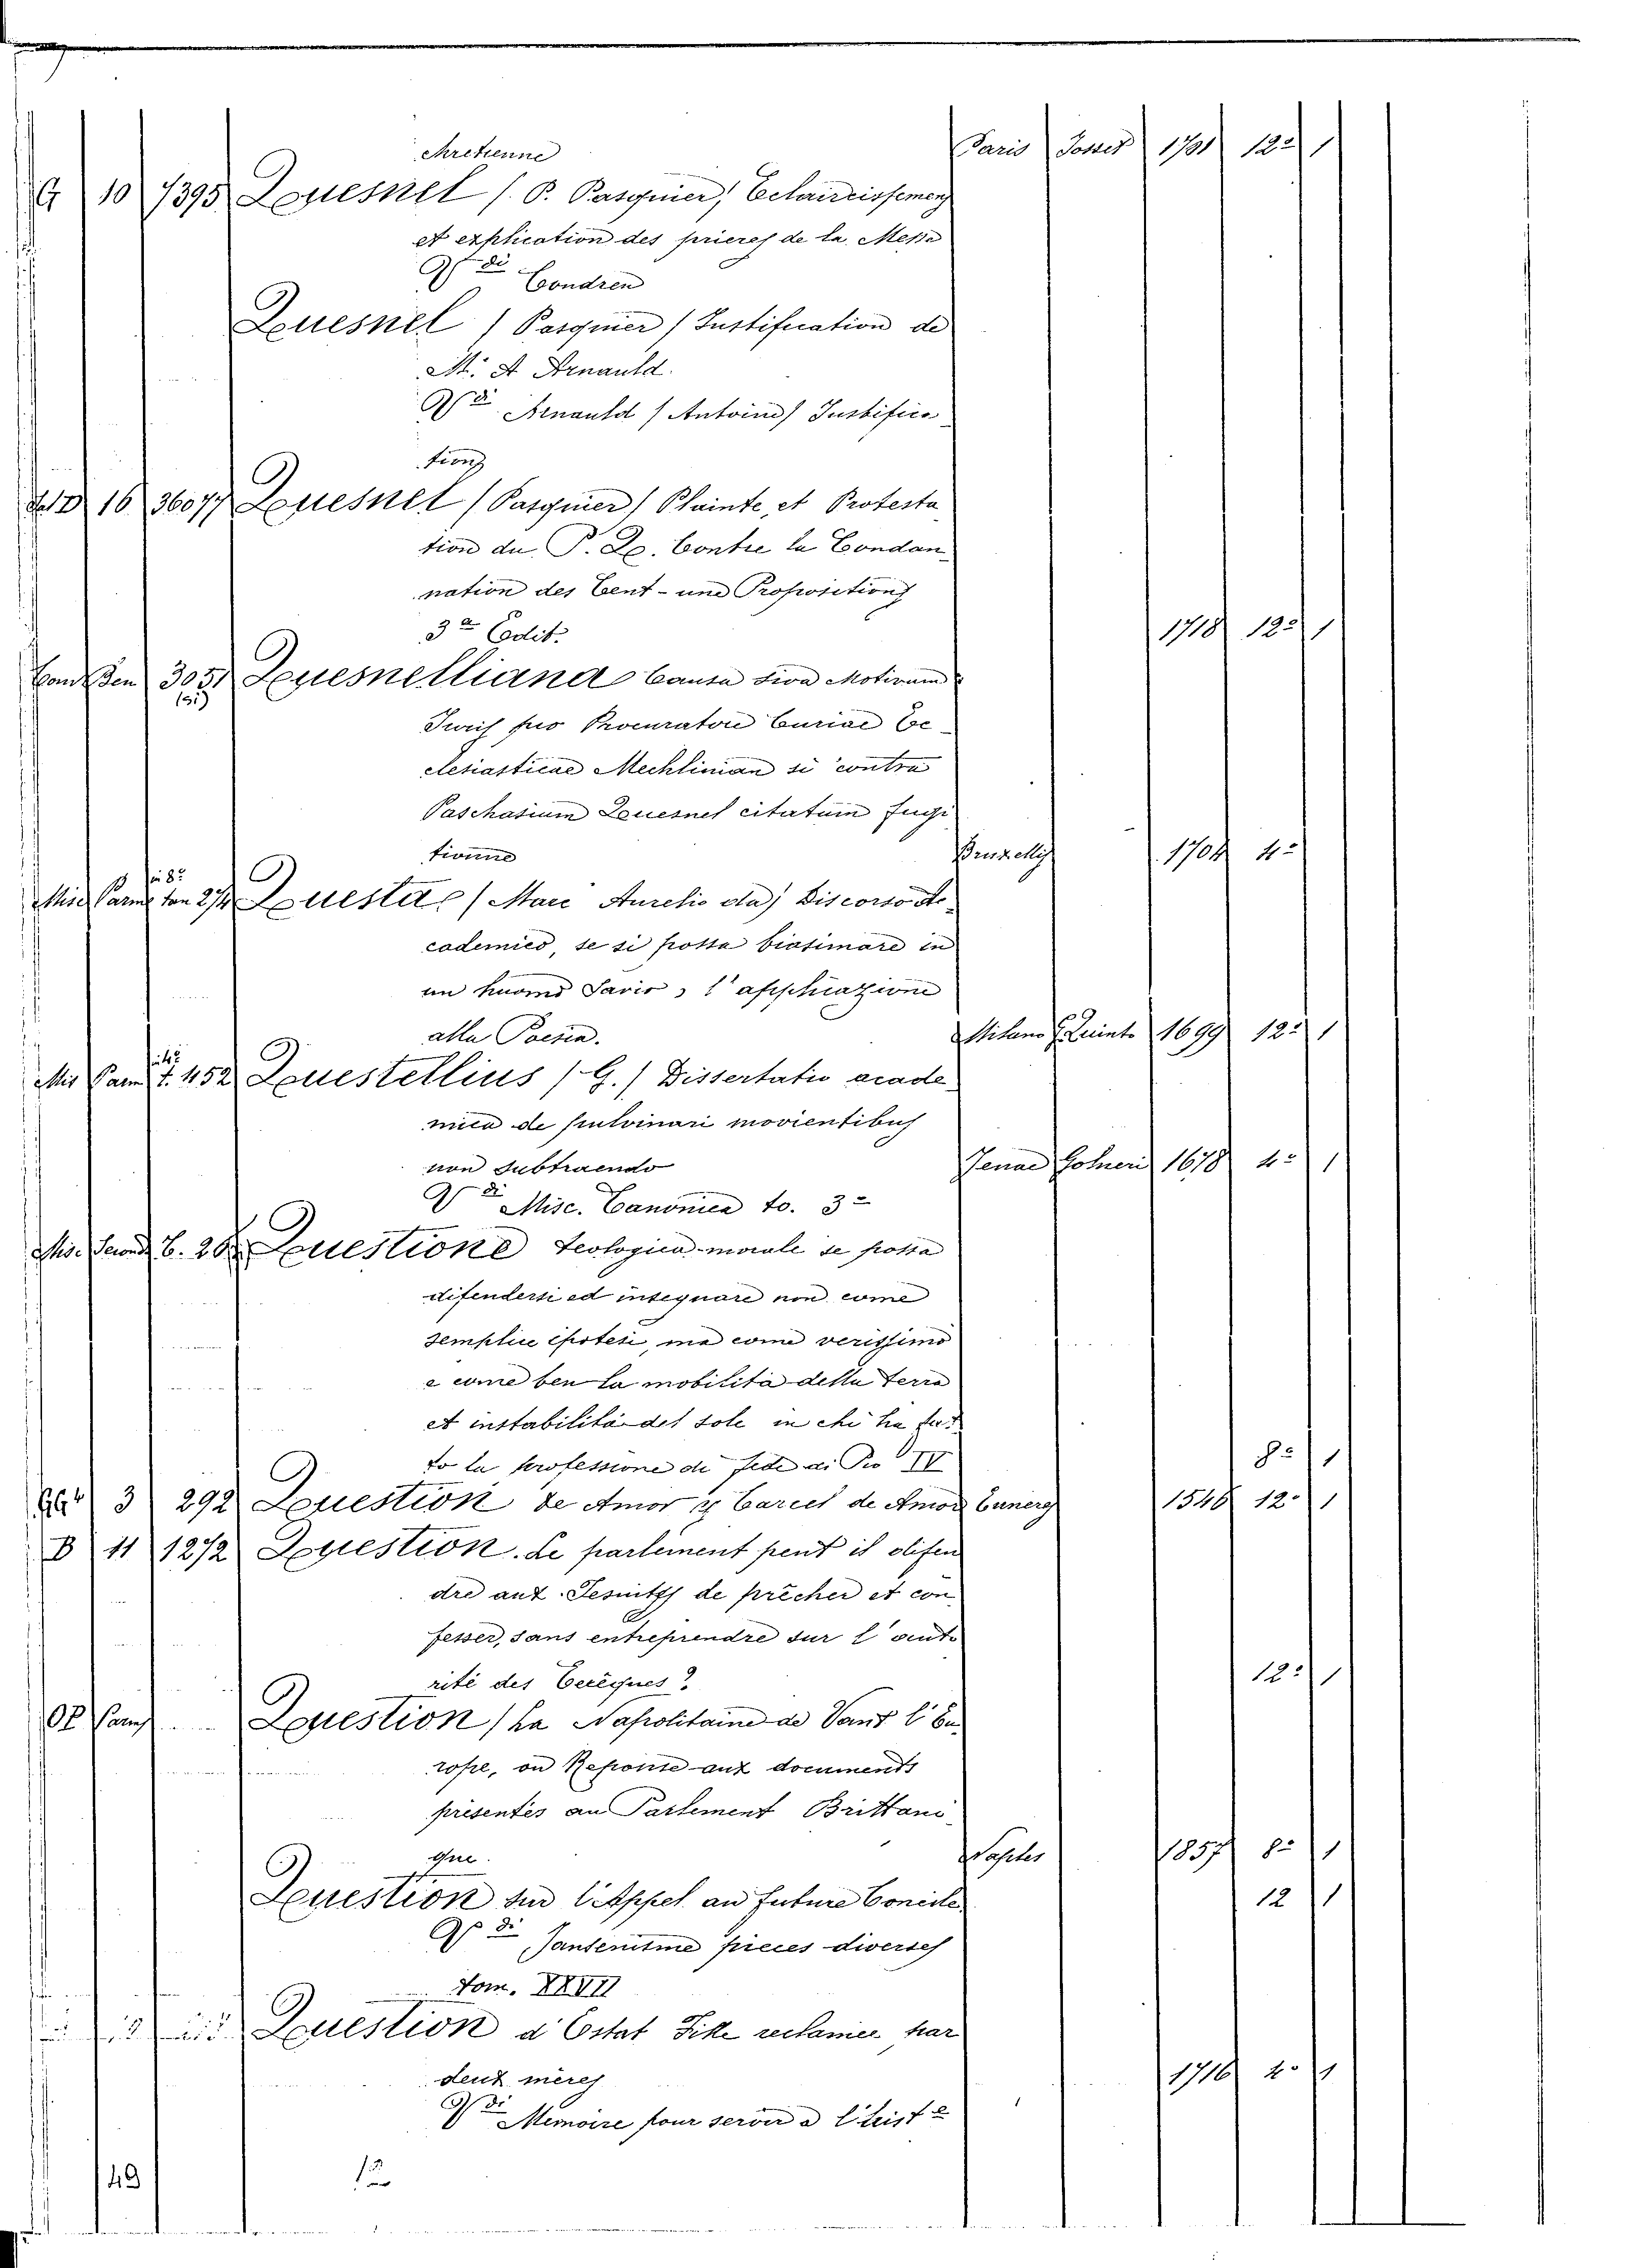 Chretienne Paris Josset 1701 12° 1
G 10 7395 Quesnel (P. Pasquier) Eclaircissemens
et explication des prieres de la Messe
Vdi Condren
Quesnel (Pasquier) Justification de
M. A Arnauld
Vdi Arnauld (Antoine) Justifica
tions
16 36077 Quesnel (Pasquier) Plainte, et Protesta
tion du P. Q. Contre la Condan
nation des Cent-une Propositions
3a Edit. 1718 12° 1
3051 Quesnelliana Causa sive Motivum
Juris pro Procuratore Curiae Ec
clesiasticae Mechlinian si contra
Paschasium Quesnel citatum fugi
tivum Bruxellis 1704 4°
in 8°
Mis Parm tom 274 Questa (Marc Aurelio da) Discorso Ac
cademico, se si possa biasimare in
un huomo Savio, l'applicazione
alla Poesia. Milano Quinto 1699 12° 1
in 4°
Mis Parm t. 452 Questellius (G.) Dissertatio acade
mica de pulvinari morientibus
non subtraendo Jenae Gohneri 1678 4° 1
Vdi Misc. Canonica to. 3°
Mis. Second 6. 20 Questione teologico-morale se possa
difendersi ed insegnare non come
semplice ipotesi, ma come verissimo
e come ben la mobilità della terra
et instabilità del sole in chi ha fat
to la professione di fede di Pio IV 8° 1
3 292 Question de Amor y Carcel de Amor Enveres 1546 12° 1
B 11 1272 Question. Le parlement peut il defen
dre aux Jesuites de prêcher et con
fesser, sans entreprendre sur l'auto
rité des Evêques? 12° 1
Op Parm Question (La Napolitaine de Vant l'Eu
rope, ou Reponse aux documents
présentés au Parlement Brittani
que. Naples 1857 8° 1
Question sur l'Appel au future Concile 12 1
Vdi Jansenisme pieces diverses
Tom. XXVII
Question d'Estat Fike reclamée par
deux meres 1716 4° 1
Vdi Memoire pour servir a l'hist e
49 12